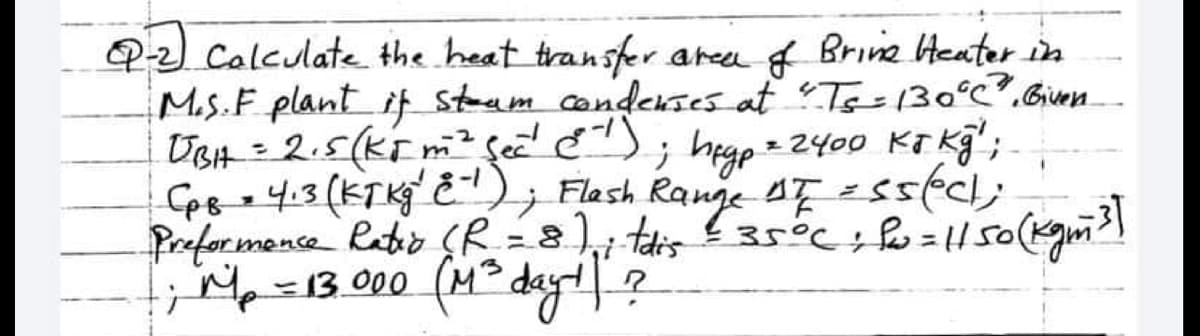 Q-2) Calculate the heat transfer area of Brine Heater in
M.S.F plant if steam condenses at "Ts = 130°C". Given
UBH = 2.5 (KJ m⁻² sec⁻¹ °C⁻¹) ; hfgp = 2400 KJ Kg⁻¹ ;
CpB = 4.3 (KJ Kg⁻¹ °C⁻¹) ; Flash Range ΔTF = 55 (°C) ;
Preformance Ratio (R = 8) ; tdis = 35°C ; ρw = 1150 (Kg m⁻³)
; Ṁp = 13 000 (M³ day⁻¹) ?